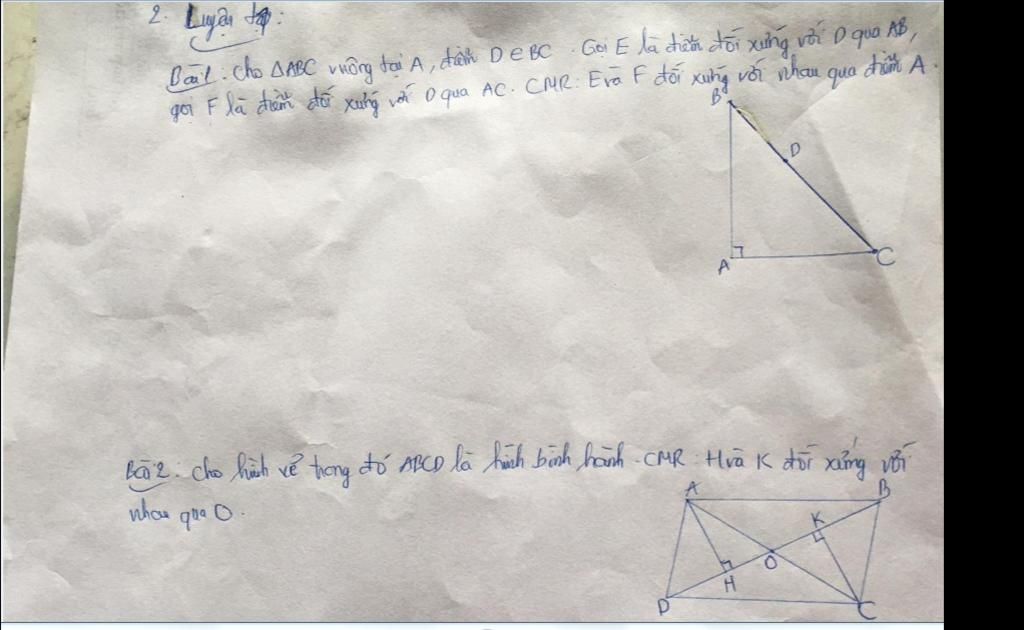 2. Luyện tập:
Bài 1: Cho ΔABC vuông tại A, điểm D∈BC. Gọi E là điểm đối xứng với D qua AB,
gọi F là điểm đối xứng với D qua AC. CMR: E và F đối xứng với nhau qua điểm A.
B
D
A
C
Bài 2. Cho hình vẽ trong đó ABCD là hình bình hành. CMR: H và K đối xứng với
nhau qua O.
A
B
K
O
H
D
C